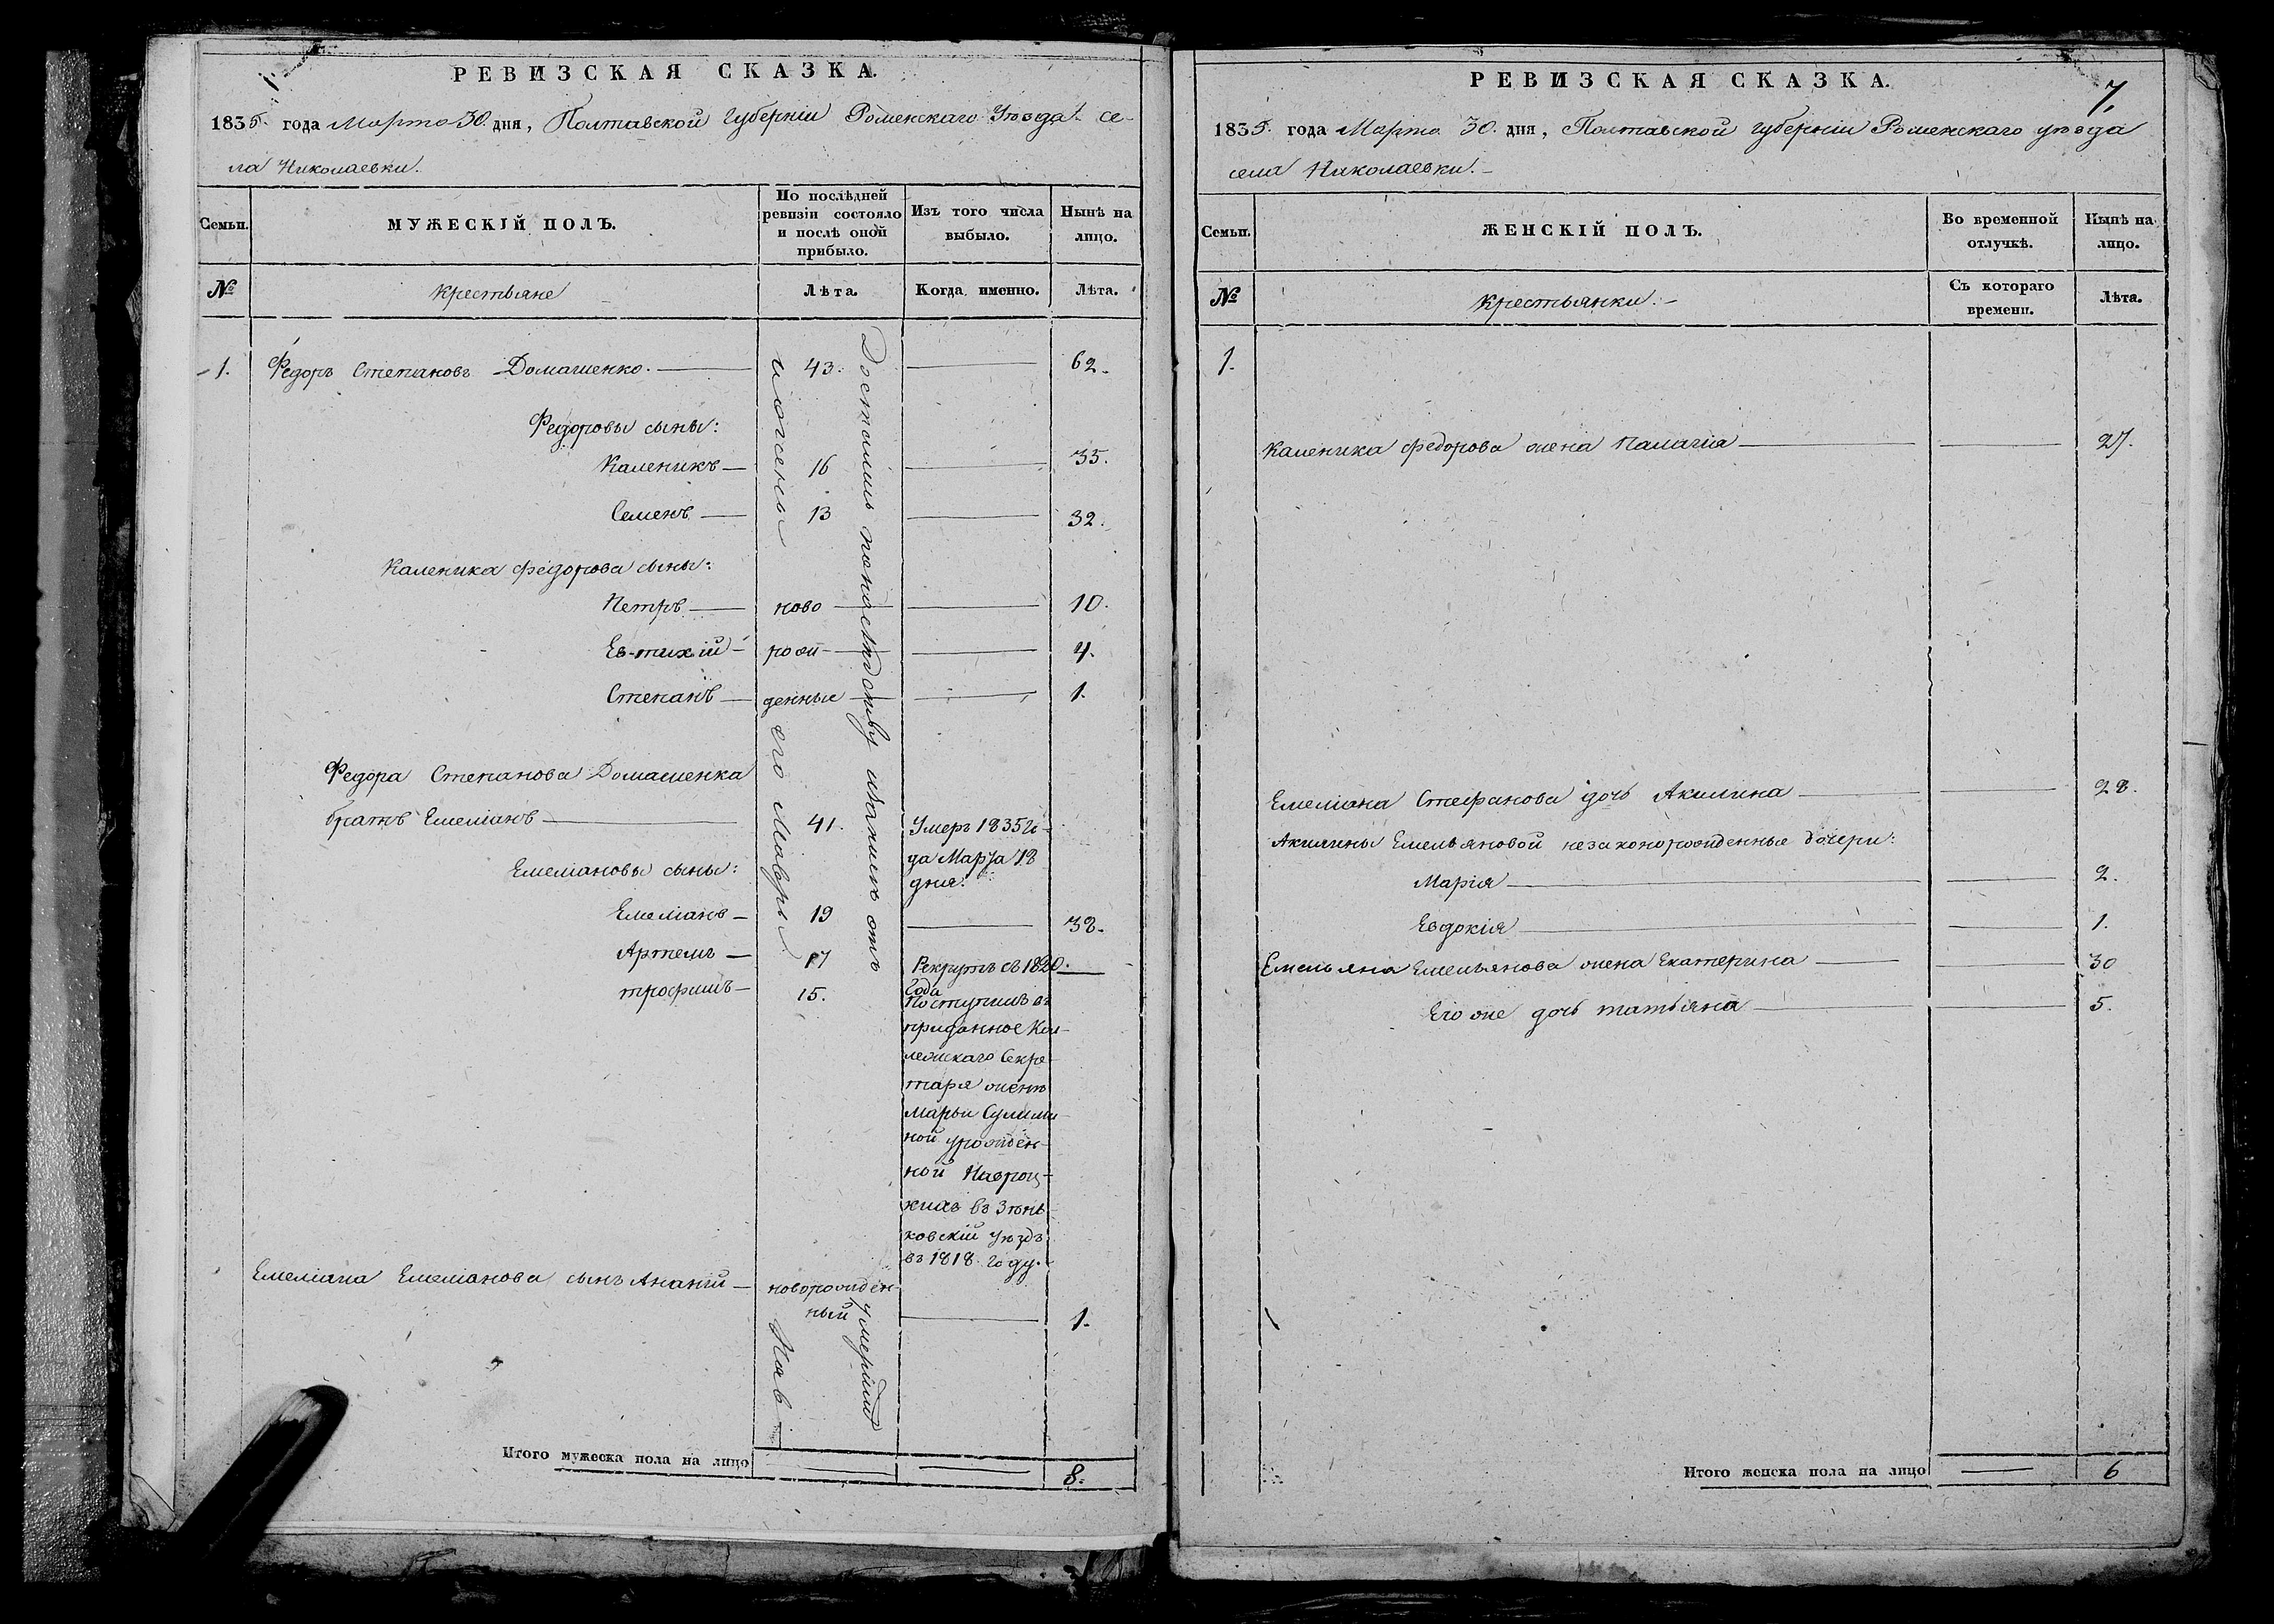 РЕВИЗСКАЯ СКАЗКА.
1835. года Марта 30. дня, Полтавской Губерніи Роменскаго Уѣзда се-
ла Николаевки.
Семьи.
МУЖЕСКІЙ ПОЛЪ.
По послѣдней
ревизіи состояло
и послѣ оной
прибыло.
Изъ того числа
выбыло.
Нынѣ на
лицо.
№
Крестьяне
Лѣта.
Когда именно.
Лѣта.
1. Федоръ Степановъ Домашенко. 43. 62.
Федоровы сыны:
Каленикъ 16 35.
Семенъ 13 32.
Каленика Федорова сыны:
Петръ ново 10.
Евтихій рож 4.
Степанъ денные 1.
Федора Степанова Домашенка
братъ Емеліанъ 41. Умеръ 1835 го-
да Марта 18
дня.
Емеліановы сыны:
Емеліанъ 19 38.
Артемъ 17 Рекрутъ въ 1820.
года
Трофимъ 15. Поступилъ въ
приданное Кол-
лежскаго Секре-
таря женѣ
Марьи Сулими-
ной урожден-
ной Навроц-
кихъ въ Зѣнь-
ковскій уѣздъ
въ 1818. году.
Емеліана Емеліанова сынъ Ананій новорожден-
ный 1.
Достались по наслѣдству имъ отъ умершей
и жены его Мавры Нав
Итого мужеска пола на лицо 8.
РЕВИЗСКАЯ СКАЗКА.
7.
1835. года Марта 30. дня, Полтавской губерніи Роменскаго уѣзда
села Николаевки.
Семьи.
ЖЕНСКІЙ ПОЛЪ.
Во временной
отлучкѣ.
Нынѣ на
лицо.
№
Крестьянки.
Съ котораго
времени.
Лѣта.
1.
Каленика Федорова жена Палагія 27.
Емеліана Стефанова дочь Акилина 28.
Акилины Емельяновой незаконорожденные дочери:
Марія 2.
Евдокія 1.
Емельяна Емельянова жена Екатерина 30
Его же дочь Татьяна 5.
Итого женска пола на лицо 6